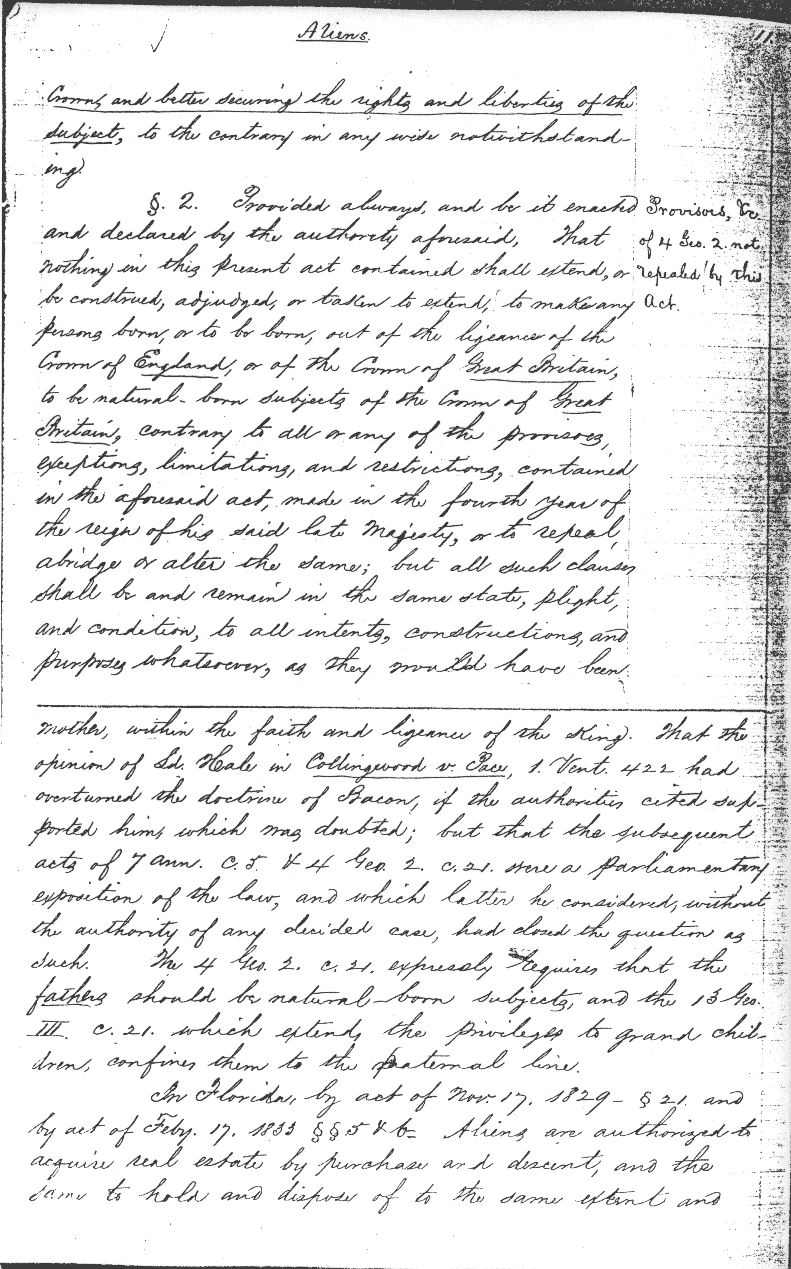 Aliens.
11.
Crown, and better securing the rights and liberties of the
subject, to the contrary in any wise notwithstand-
ing.
§. 2. Provided always, and be it enacted
and declared by the authority aforesaid, That
nothing in this present act contained shall extend, or
be construed, adjudged, or taken to extend, to make any
persons born, or to be born, out of the ligeance of the
Crown of England, or of the Crown of Great Britain,
to be natural-born subjects of the Crown of Great
Britain, contrary to all or any of the provisoes,
exceptions, limitations, and restrictions, contained
in the aforesaid act, made in the fourth year of
the reign of his said late Majesty, or to repeal,
abridge or alter the same; but all such clauses
shall be and remain in the same state, plight,
and condition, to all intents, constructions, and
purposes whatsoever, as they would have been
Provisors, &c
of 4 Geo. 2. not
repealed by this
Act.
mother, within the faith and ligeance of the King. That the
opinion of Ld. Hale in Collingwood v. Pace, 1. Vent. 422 had
overturned the doctrine of Bacon, if the authorities cited sup-
ported him, which was doubted; but that the subsequent
acts of 7 Ann. c. 5. & 4 Geo. 2. c. 21. were a parliamentary
exposition of the law, and which latter he considered, without
the authority of any decided case, had closed the question as
such. The 4 Geo. 2. c. 21. expressly requires that the
fathers should be natural-born subjects, and the 13 Geo.
III. c. 21. which extends the privileges to grand chil-
dren, confines them to the paternal line.
In Florida, by act of Nov. 17. 1829 - § 21. and
by act of Feby. 17. 1833 §§ 5 & 6- Aliens are authorized to
acquire real estate by purchase and descent, and the
same to hold and dispose of to the same extent and